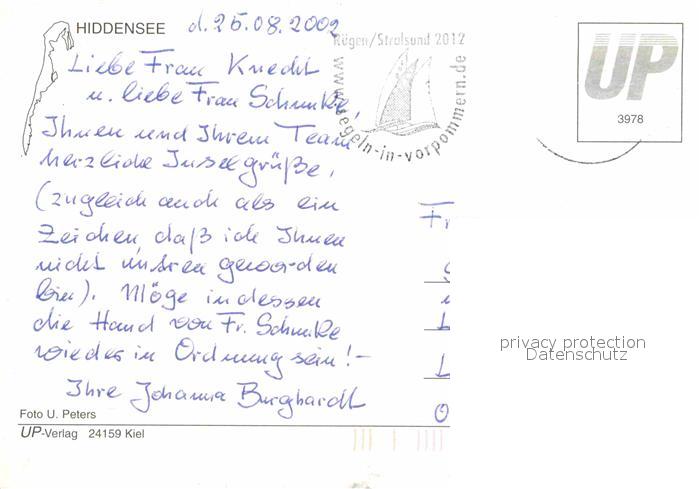 HIDDENSEE d. 26.08.2002
Rügen/Stralsund 2012
www.segeln-in-vorpommern.de
UP
3978
Liebe Frau Knecht
u. liebe Frau Schmuke,
Ihnen und Ihrem Team
herzliche Inselgrüße,
(zugleich auch als ein
Zeichen, daß ich Ihnen
nicht untreu geworden
bin). Möge indessen
die Hand von Fr. Schmuke
wieder in Ordnung sein! –
Ihre Johanna Burghardt
Fr
privacy protection
Datenschutz
Foto U. Peters
UP-Verlag 24159 Kiel